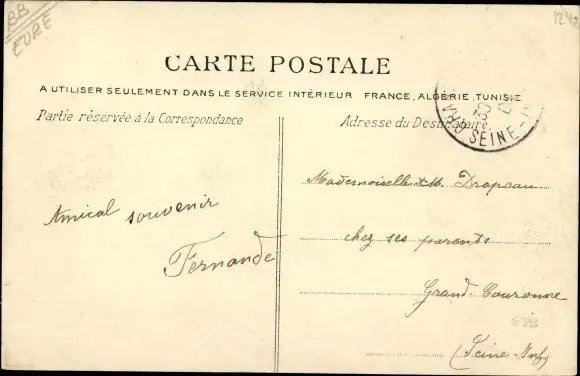 BB
EURE
CARTE POSTALE
A UTILISER SEULEMENT DANS LE SERVICE INTÉRIEUR FRANCE, ALGÉRIE, TUNISIE
Partie réservée à la Correspondance
Adresse du Destinataire
SEINE-IN
Mademoiselle M. Drapeau
Amical souvenir
Fernande
chez ses parents
Grand Couronne
(Seine-Infre